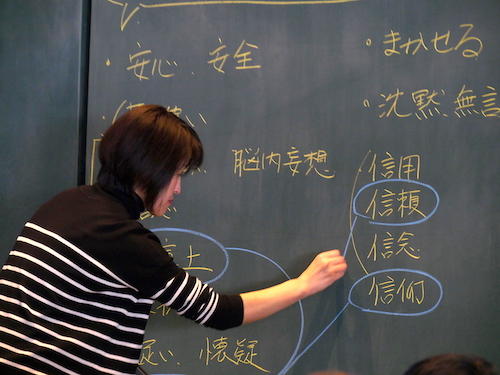 ・安心、安全
・まかせる
・沈黙、無言
脳内妄想
信用
信頼
信念
信仰
い、懐疑